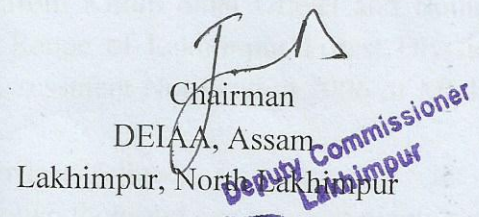 Chairman
DEIAA, Assam
Lakhimpur, North Lakhimpur
Deputy Commissioner
Lakhimpur